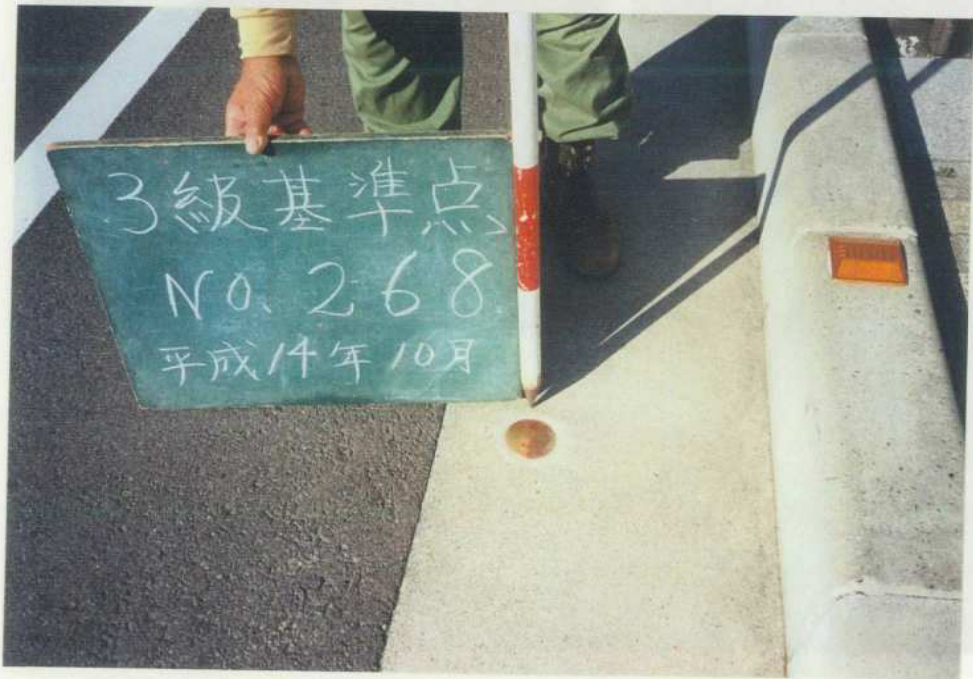 3級基準点
NO. 268
平成14年10月